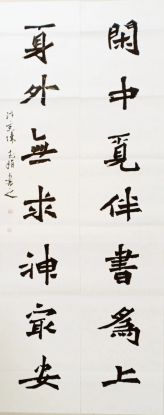 閑中覓伴書為上
身外無求神最安